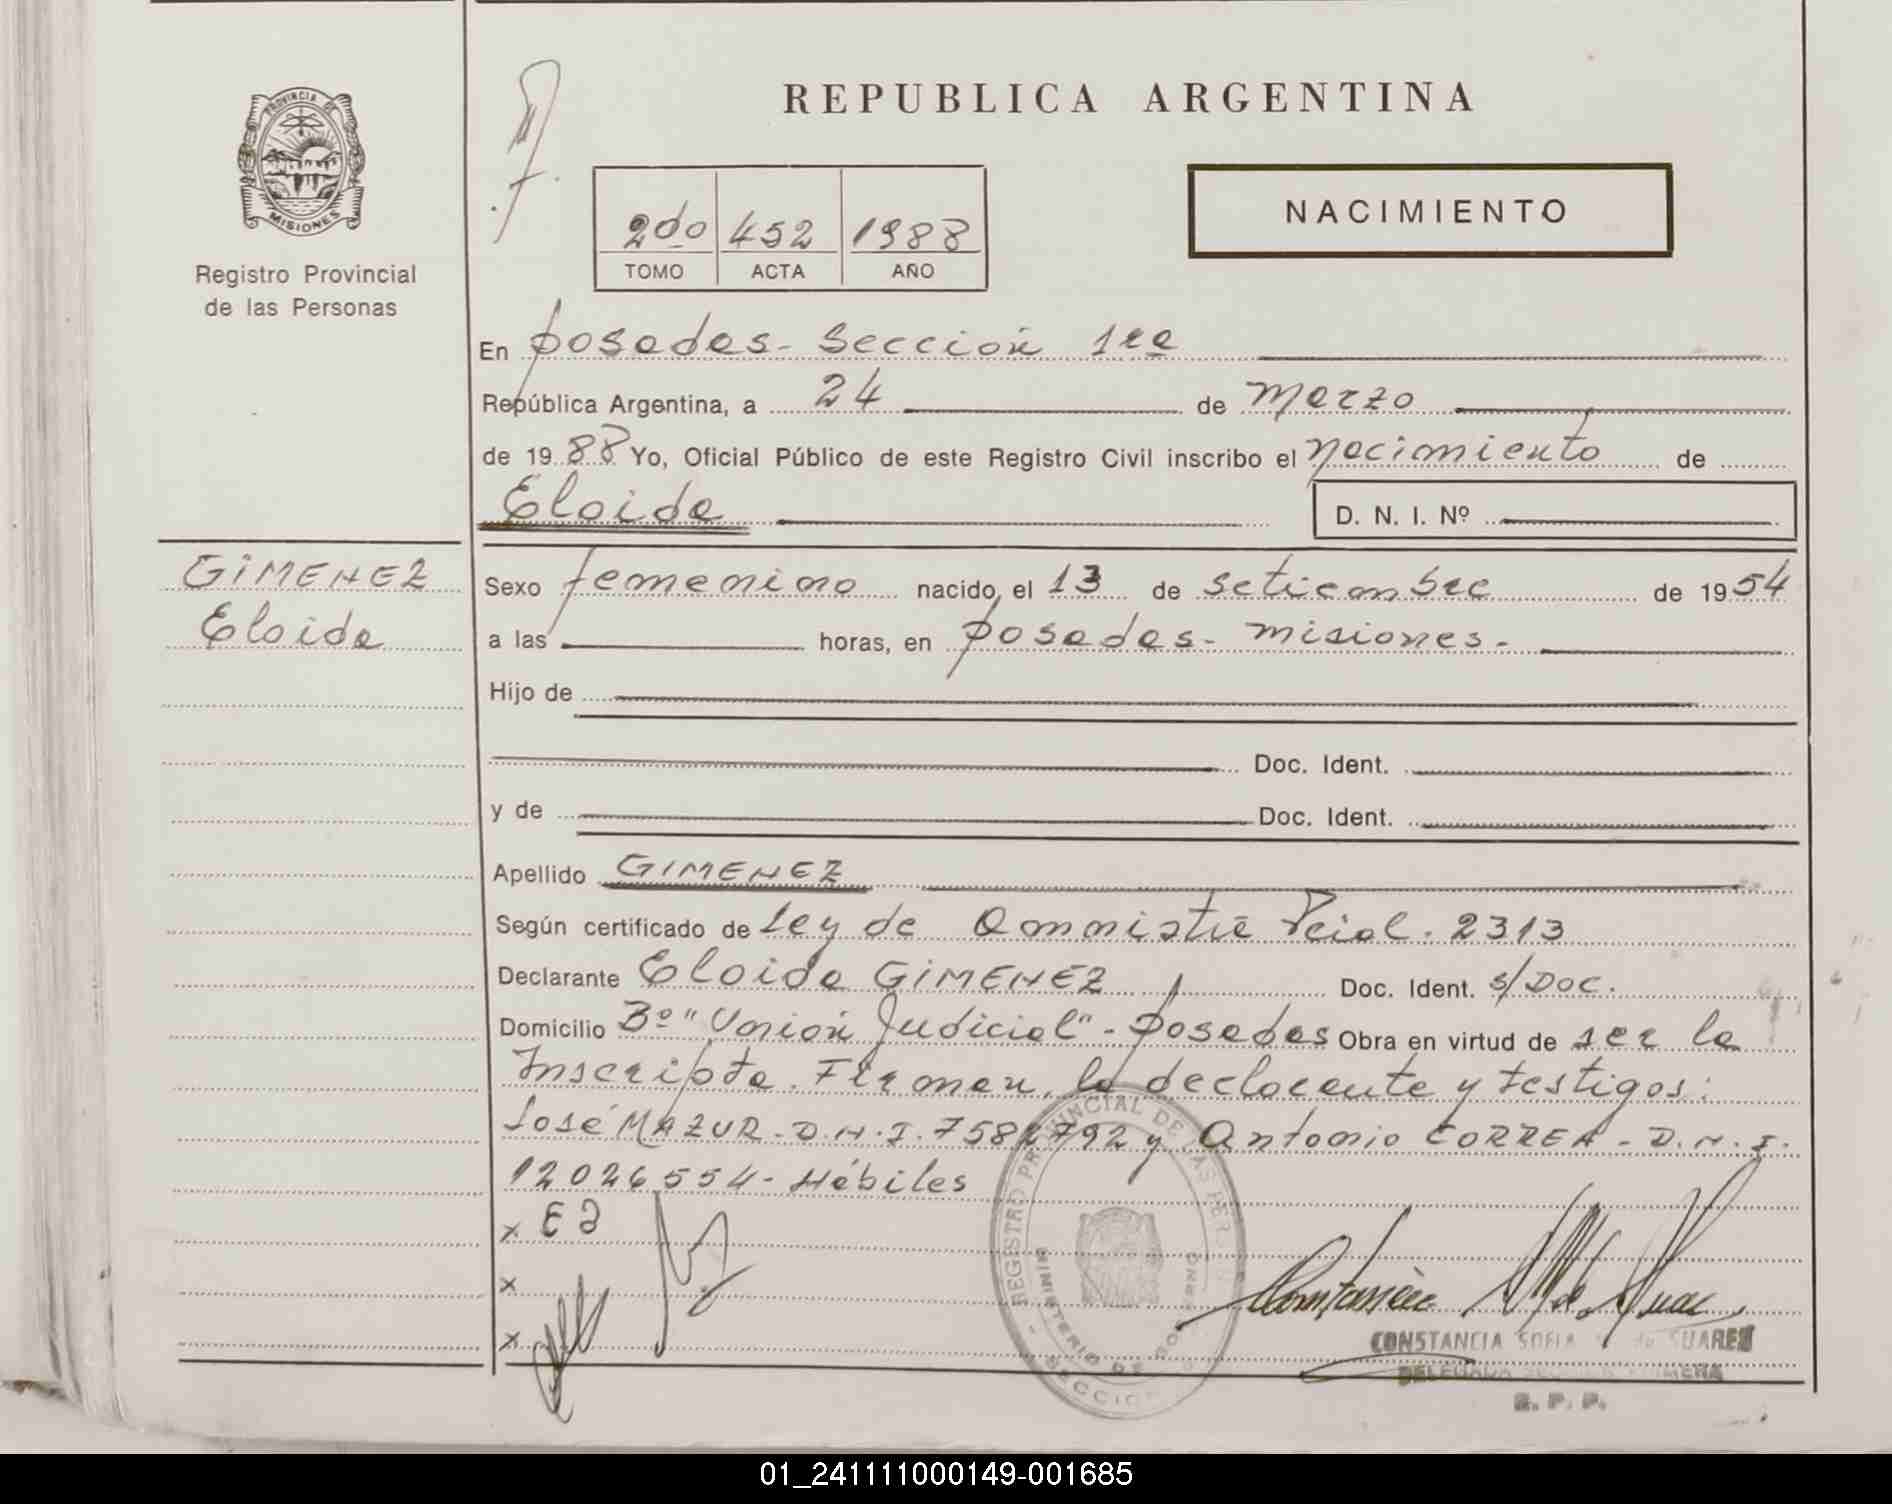 PROVINCIA DE
MISIONES
Registro Provincial
de las Personas
REPUBLICA ARGENTINA
NACIMIENTO
2do 452 1988
TOMO ACTA AÑO
En Posadas - Sección 1ra
República Argentina, a 24 de Marzo
de 1988 Yo, Oficial Público de este Registro Civil inscribo el nacimiento de
Eloida
D. N. I. Nº
GIMENEZ
Eloida
Sexo femenino nacido el 13 de setiembre de 1954
a las horas, en posadas - misiones -
Hijo de
Doc. Ident.
y de Doc. Ident.
Apellido GIMENEZ
Según certificado de Ley de Ammistia Pcial. 2313
Declarante Eloida GIMENEZ Doc. Ident. s/DOC.
Domicilio Bº "Unión Judicial" - Posadas Obra en virtud de ser la
Inscripta. Firman, la declarante y testigos:
José MAZUR - D.N.I. 7582792 y Antonio CORREA - D.N.I.
12026554 - Hábiles
x
x
x
REGISTRO PROVINCIAL DE LAS PER
MINISTERIO DE GOBIERNO
SECCION
CONSTANCIA SOFIA de SUAREZ
DELEGADA SECCION PRIMERA
R. P. P.
01_241111000149-001685